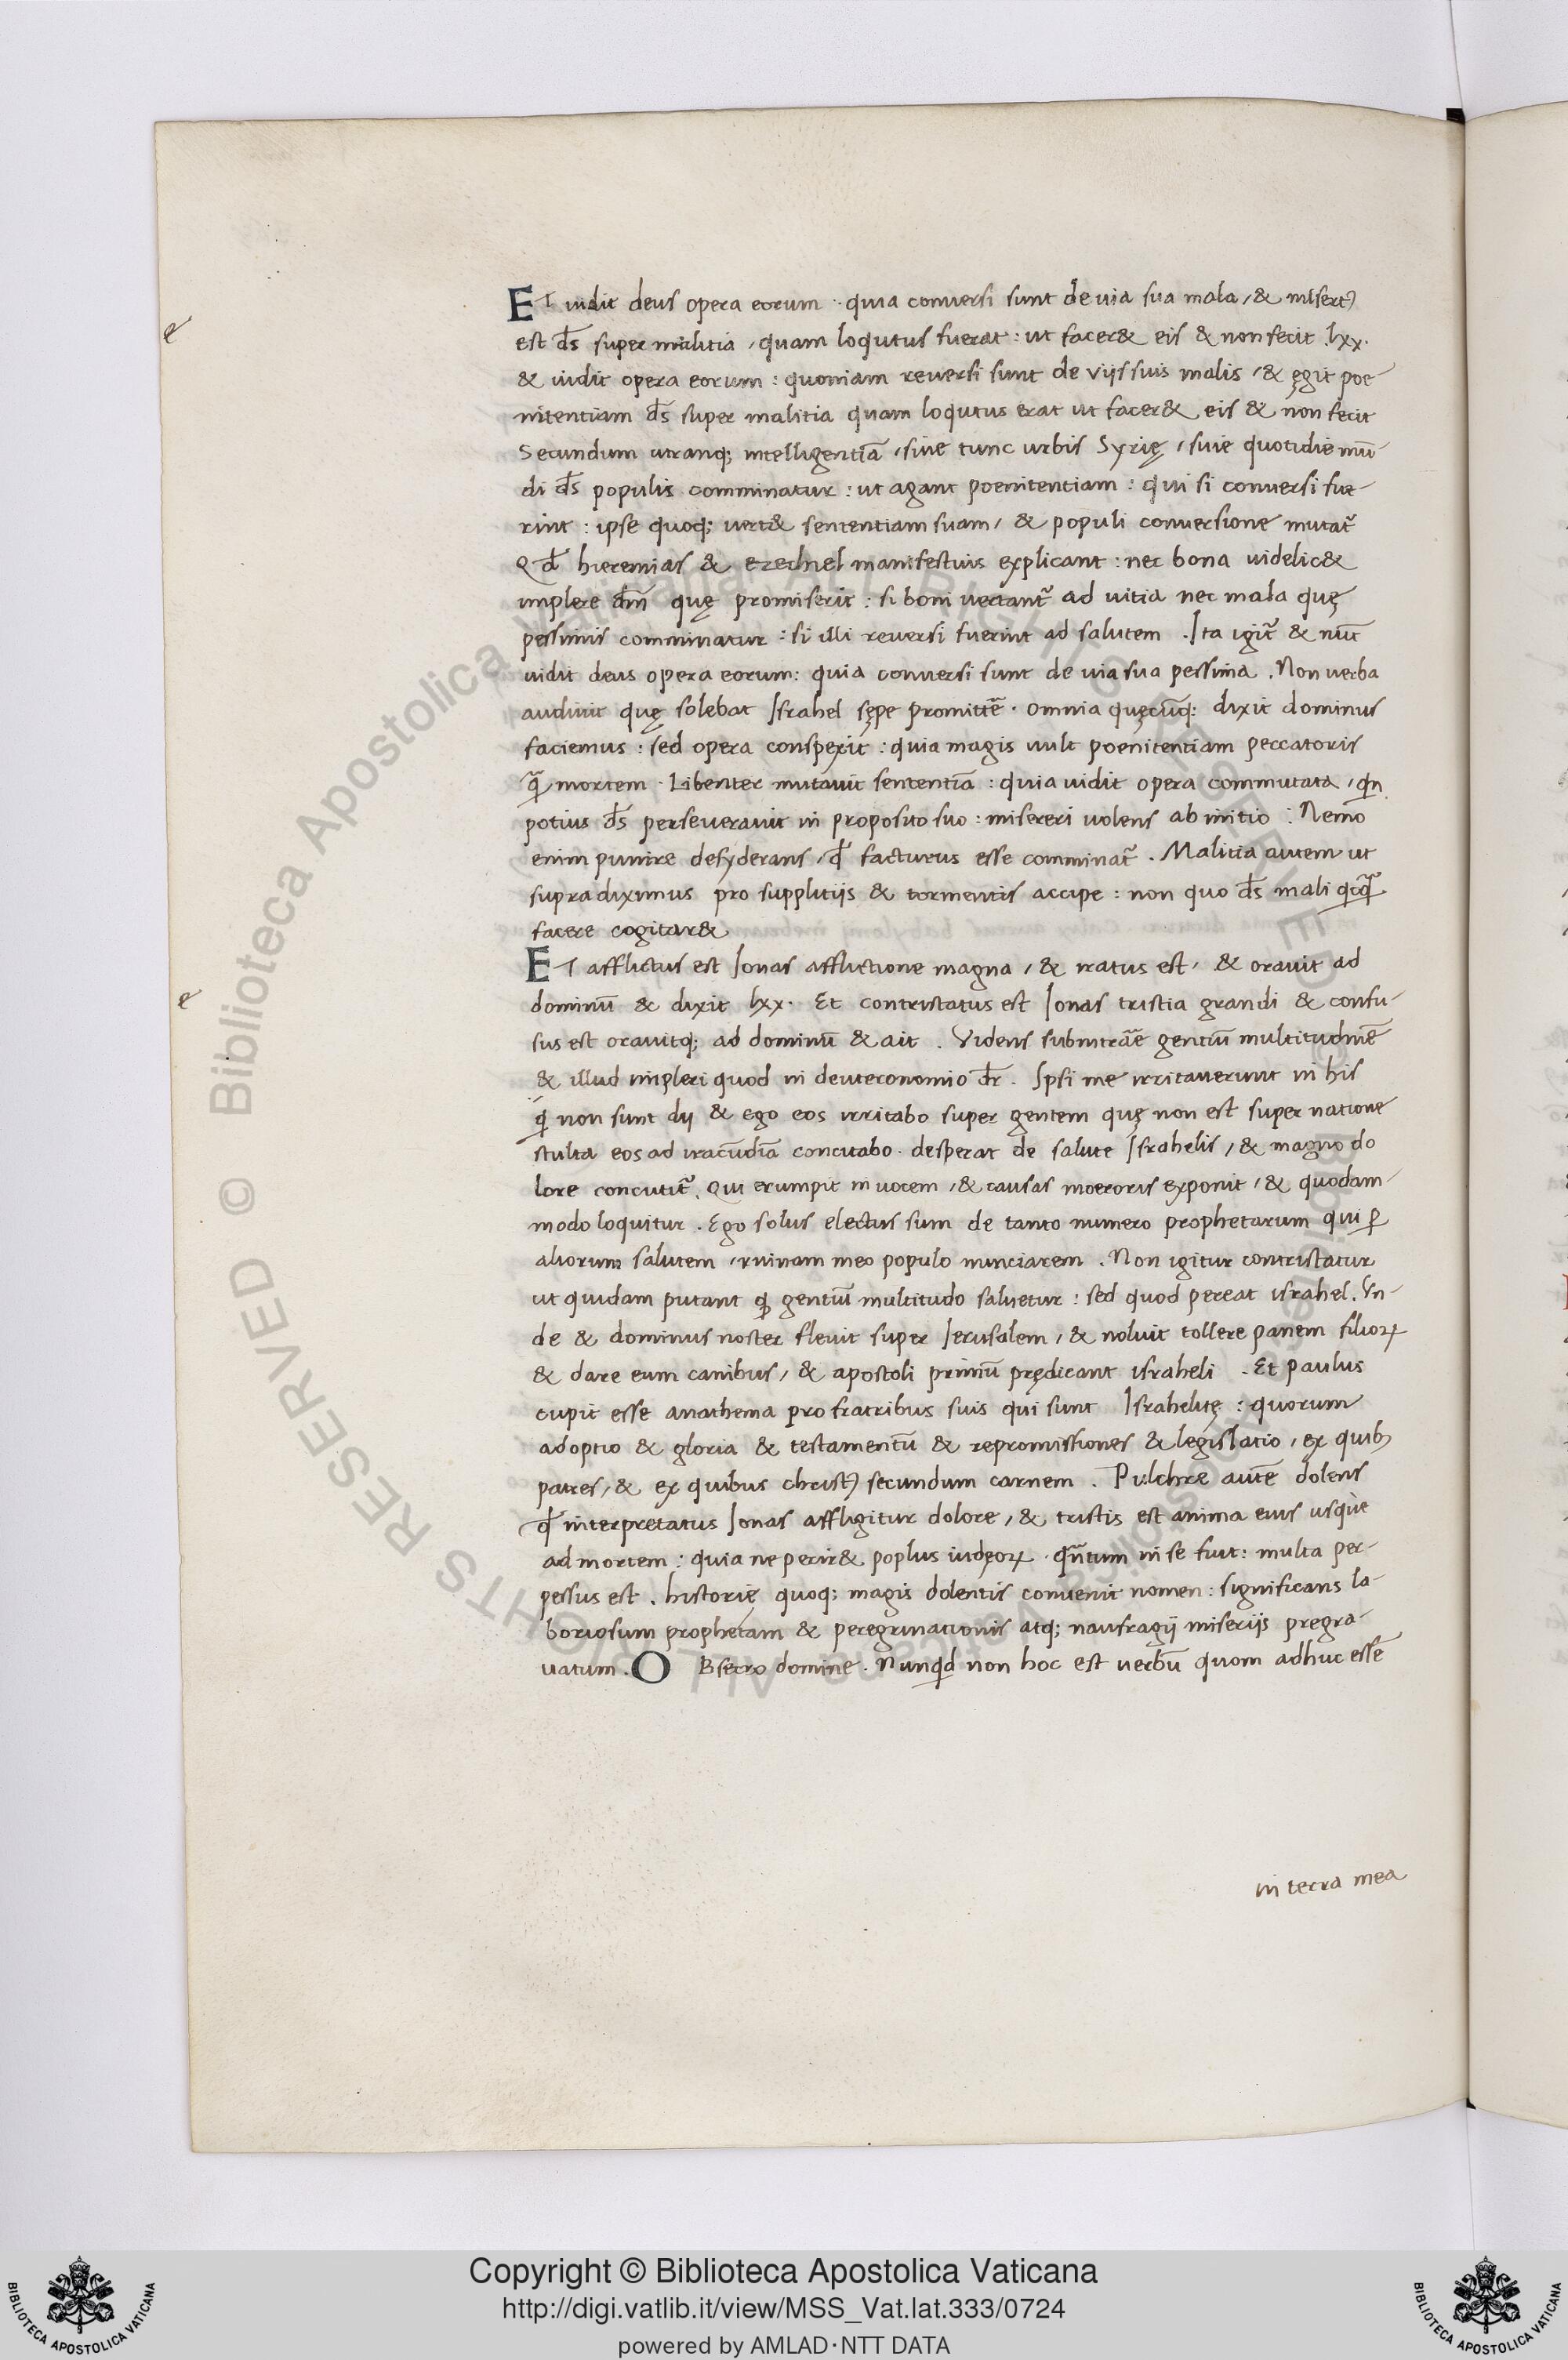 ET uidit deus opera eorum : quia conuersi sunt de uia sua mala, & misertꝰ
est d̄s super malitia, quam loqutus fuerat : ut facer& eis & non fecit. lxx.
& uidit opera eorum : quoniam reuersi sunt de viis suis malis, & ęgit poe-
nitentiam d̄s super malitia quam loqutus erat ut facer& eis & non fecit
Secundum utranq; intelligentiā, siue tunc urbis Syrię, siue quotidie mū-
di d̄s populis comminatur : ut agant poenitentiam : qui si conuersi fue-
rint : ipse quoq; uert& sententiam suam, & populi conuersione mutat᷑
Qd̄ hieremias & ezechiel manifestius explicant : nec bona uidelic&
implere dm̄ quę promiserit : si boni uertant᷑ ad uitia nec mala quę
pessimis comminatur : si illi reuersi fuerint ad salutem . Ita igit᷑ & nūc
uidit deus opera eorum : quia conuersi sunt de uia sua pessima . Non uerba
audiuit quę solebat Israhel sępe promittē̄ . omnia quęcūq; dixit dominus
faciemus : sed opera conspexit : quia magis uult poenitentiam peccatoris
q̄ mortem . Libenter mutauit sententiā : quia uidit opera commutata, qn
potius d̄s perseuerauit in proposito suo : misereri uolens ab initio . Nemo
enim punire desyderans, qd̄ facturus esse comminat᷑ . Malitia autem ut
supra diximus pro supplitijs & tormentis accipe : non quo d̄s mali qcq̄
facere cogitar&
ET afflictus est Ionas afflictione magna, & iratus est, & orauit ad
dominū & dixit lxx. Et contristatus est Ionas tristia grandi & confu-
sus est orauitq; ad dominū & ait . Videns subintrāe gentiū multitudinē
& illud impleri quod in deuteronomio dr̄ . Ipsi me irritauerunt in his
q non sunt dij & ego eos irritabo super gentem quę non est super natione
stulta eos ad iracūdiā concitabo . desperat de salute Israhelis, & magno do
lore concutit᷑. Qui erumpit in uocem, & causas moeroris exponit, & quodam-
modo loquitur . Ego solus electus sum de tanto numero prophetarum qui ꝑ
aliorum salutem, ruinam meo populo nunciarem . Non igitur contristatur
ut quidam putant q gentiū multitudo saluetur : sed quod pereat israhel . Vn-
de & dominus noster fleuit super Ierusalem, & noluit tollere panem filioꝝ
& dare eum canibus, & apostoli primū prędicant israheli . Et paulus
cupit esse anathema pro fratribus suis qui sunt Israhelitę : quorum
adoptio & gloria & testamentū & repromissiones & legislatio, ex quibꝰ
patres, & ex quibus christꝰ secundum carnem . Pulchre autē dolens
qd̄ interpretatus Ionas affligitur dolore, & tristis est anima eius usque
ad mortem : quia ne perir& poplus iudęoꝝ . qn̄tum in se fuit : multa per-
pessus est . historię quoq; magis dolentis conuenit nomen : significans la-
boriosum prophetam & peregrinationis atq; naufragij miserijs pregra-
uatum . OBsecro domine . Nunqd non hoc est uerbū quom adhuc essē
in terra mea
Copyright © Biblioteca Apostolica Vaticana
http://digi.vatlib.it/view/MSS_Vat.lat.333/0724
powered by AMLAD·NTT DATA